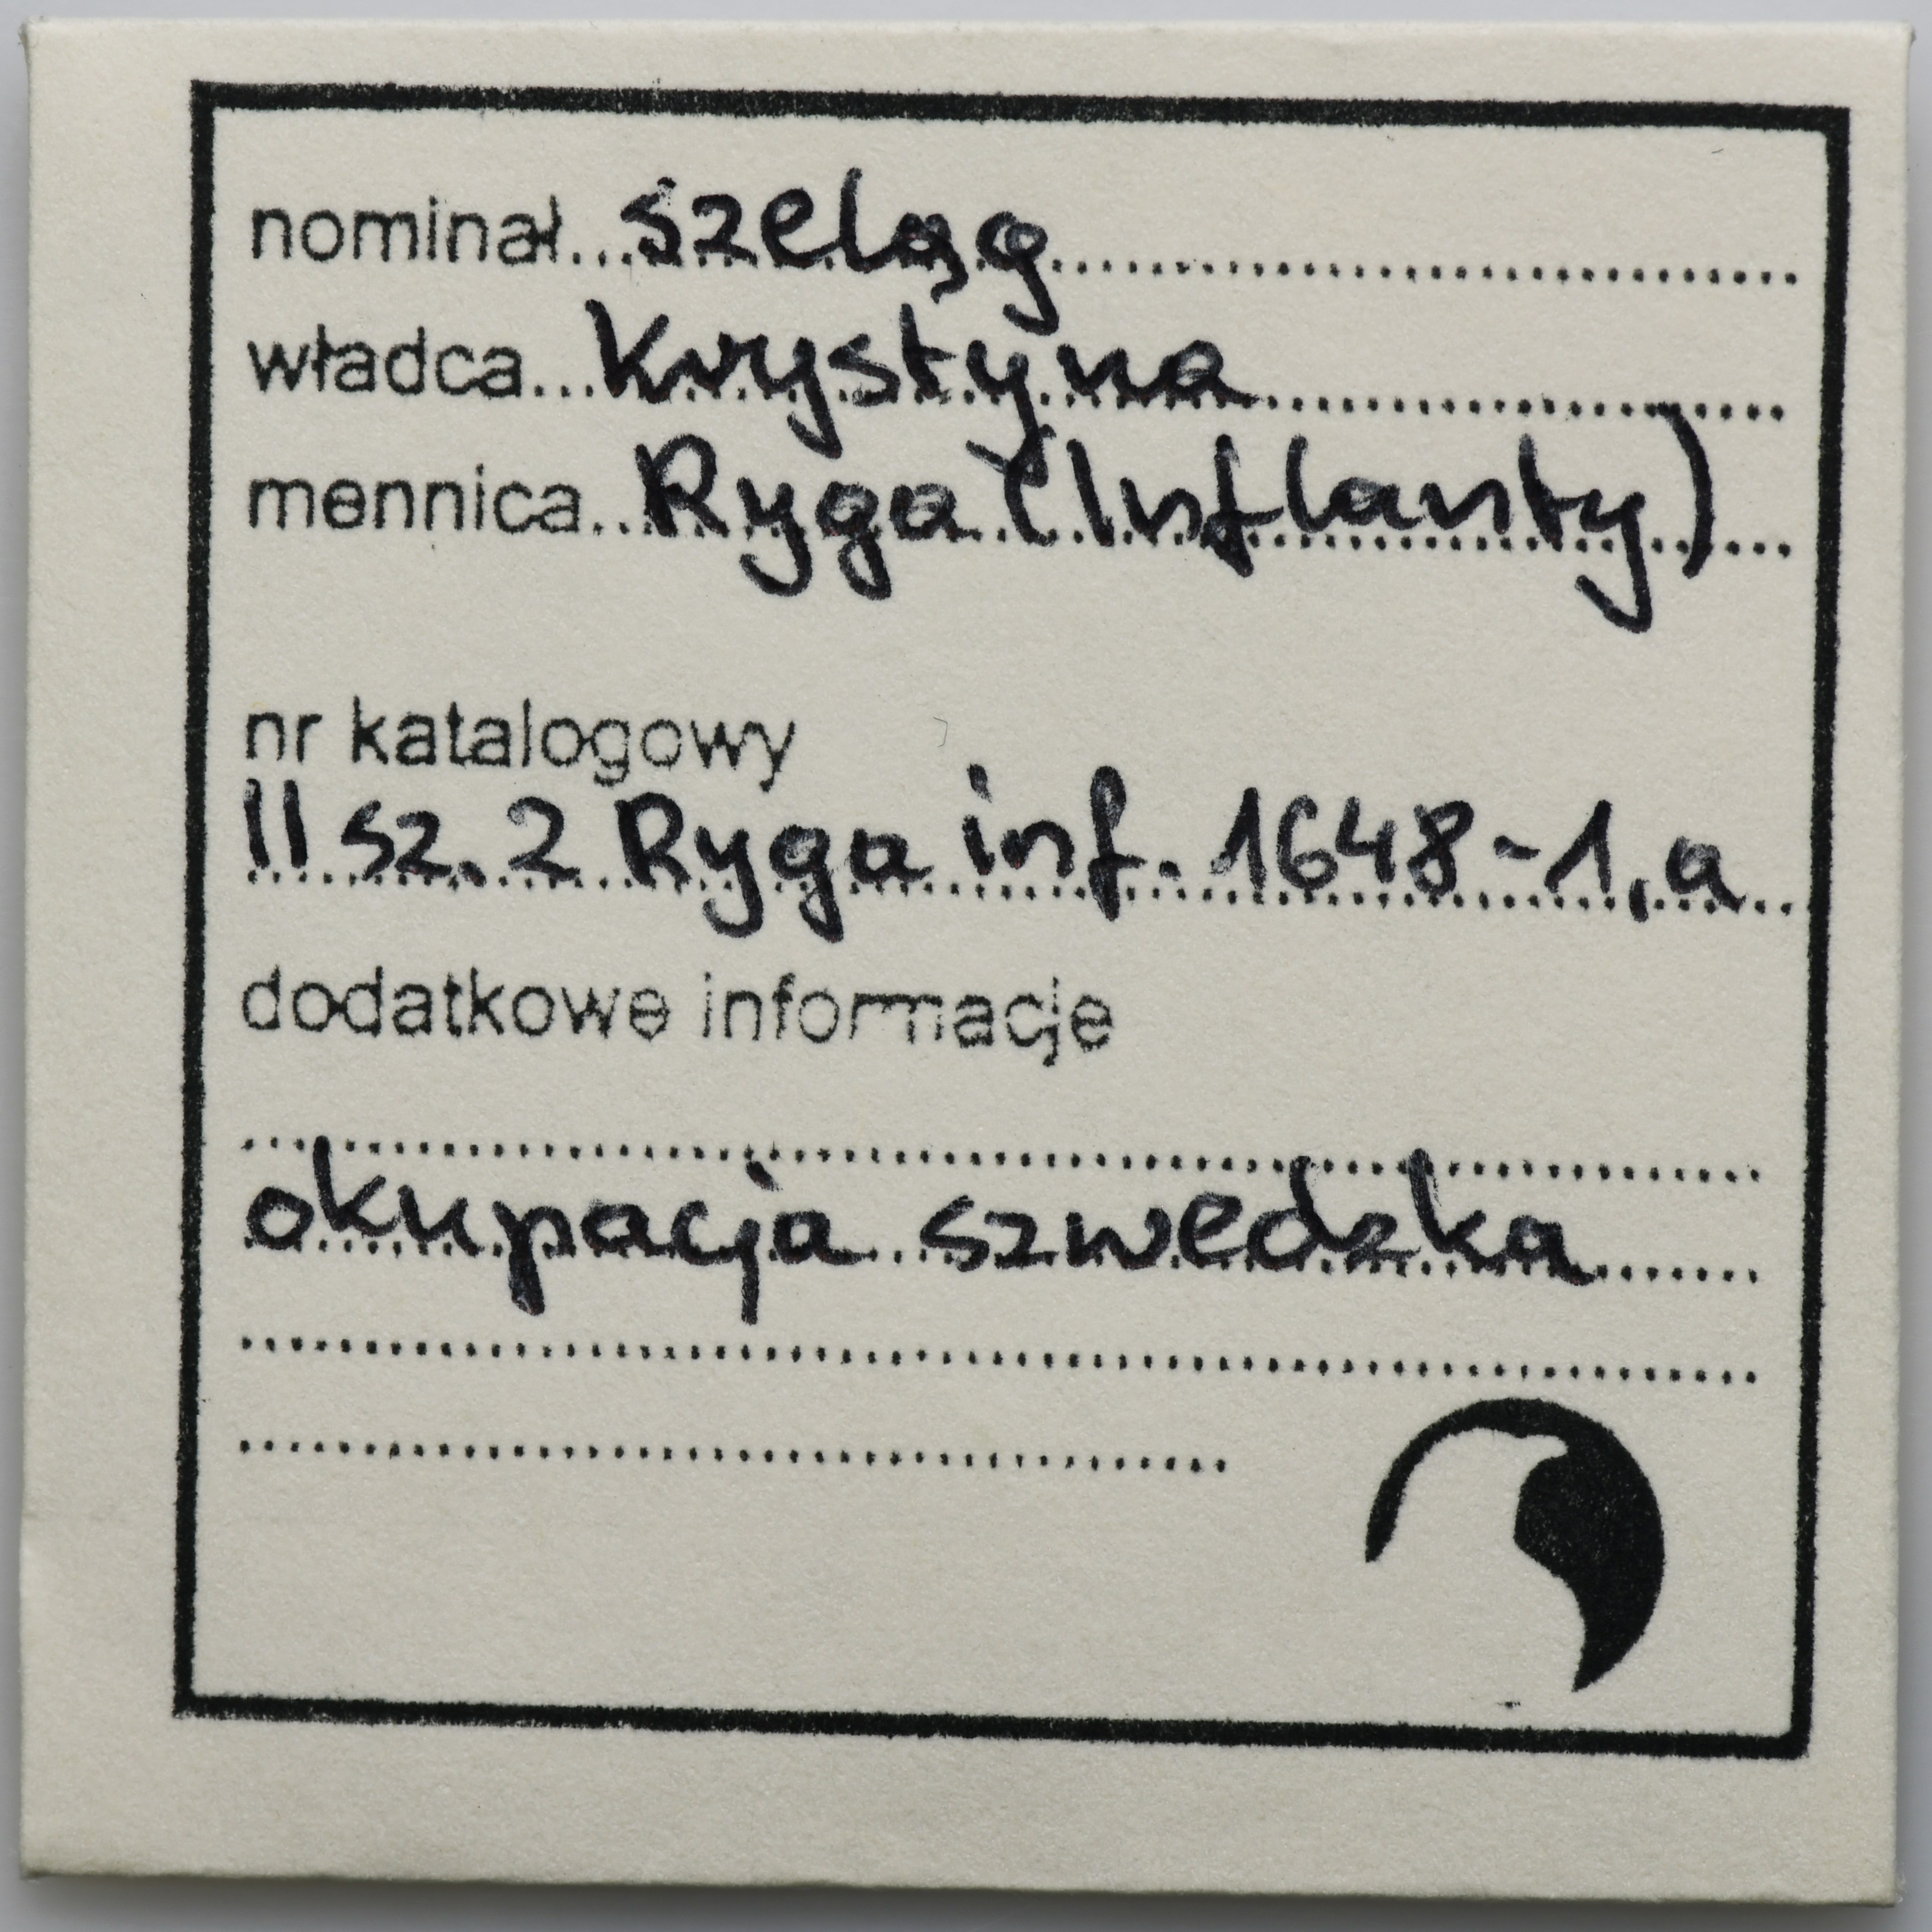 nominał...szeląg
władca...Krystyna
mennica...Ryga (Inflanty)
nr katalogowy
II sz. 2 Ryga inf. 1648-1, a
dodatkowe informacje
okupacja szwedzka